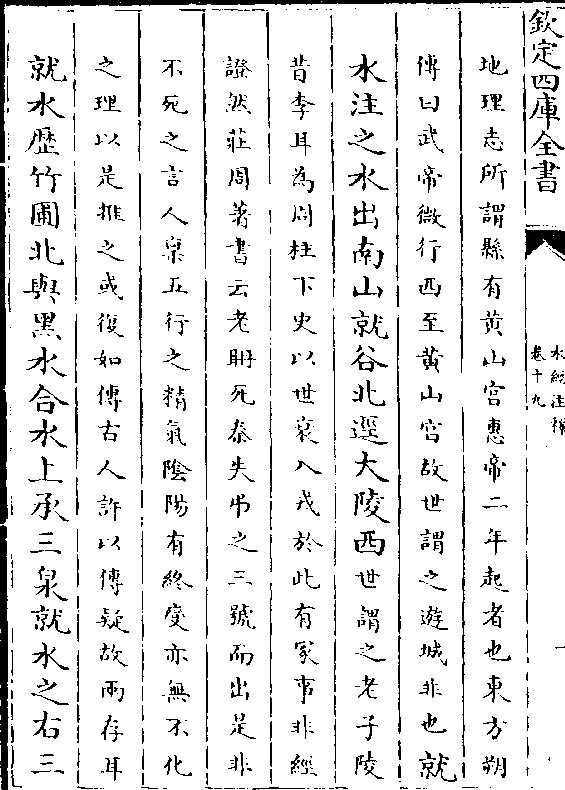 欽定四庫全書
水經注釋
卷十九
地理志所謂縣有黄山宮惠帝二年起者也東方朔
傳曰武帝微行西至黄山宮故世謂之遊城非也就
水注之水出南山就谷北逕大陵西世謂之老子陵
昔李耳為周柱下史以世衰入戎於此有冢事非經
證然莊周著書云老耼死秦失弔之三號而出是非
不死之言人稟五行之精氣陰陽有終變亦無不化
之理以是推之或復如傳古人許以傳疑故兩存耳
就水歷竹圃北與黑水合水上承三泉就水之右三